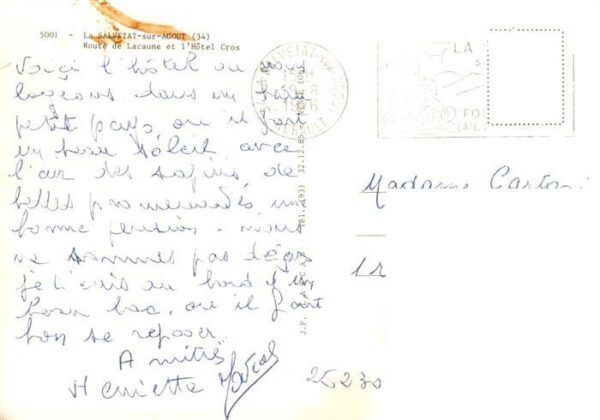 5001 - La SALVETAT-sur-AGOUT (34)
Route de Lacaune et l'Hôtel Cros
Voiçi l'hôtel ou nous
logeons dans un beau
petit pays, ou il fait
un beau soleil avec
l'air des sapins, de
belles promenades une
bonne pension. nous
ne sommes pas déçus
je t'écris au bord d'un
beau lac, ou il fait
bon se reposer.
Amitiés
Henriette
LA
HERAULT
Madame
25230